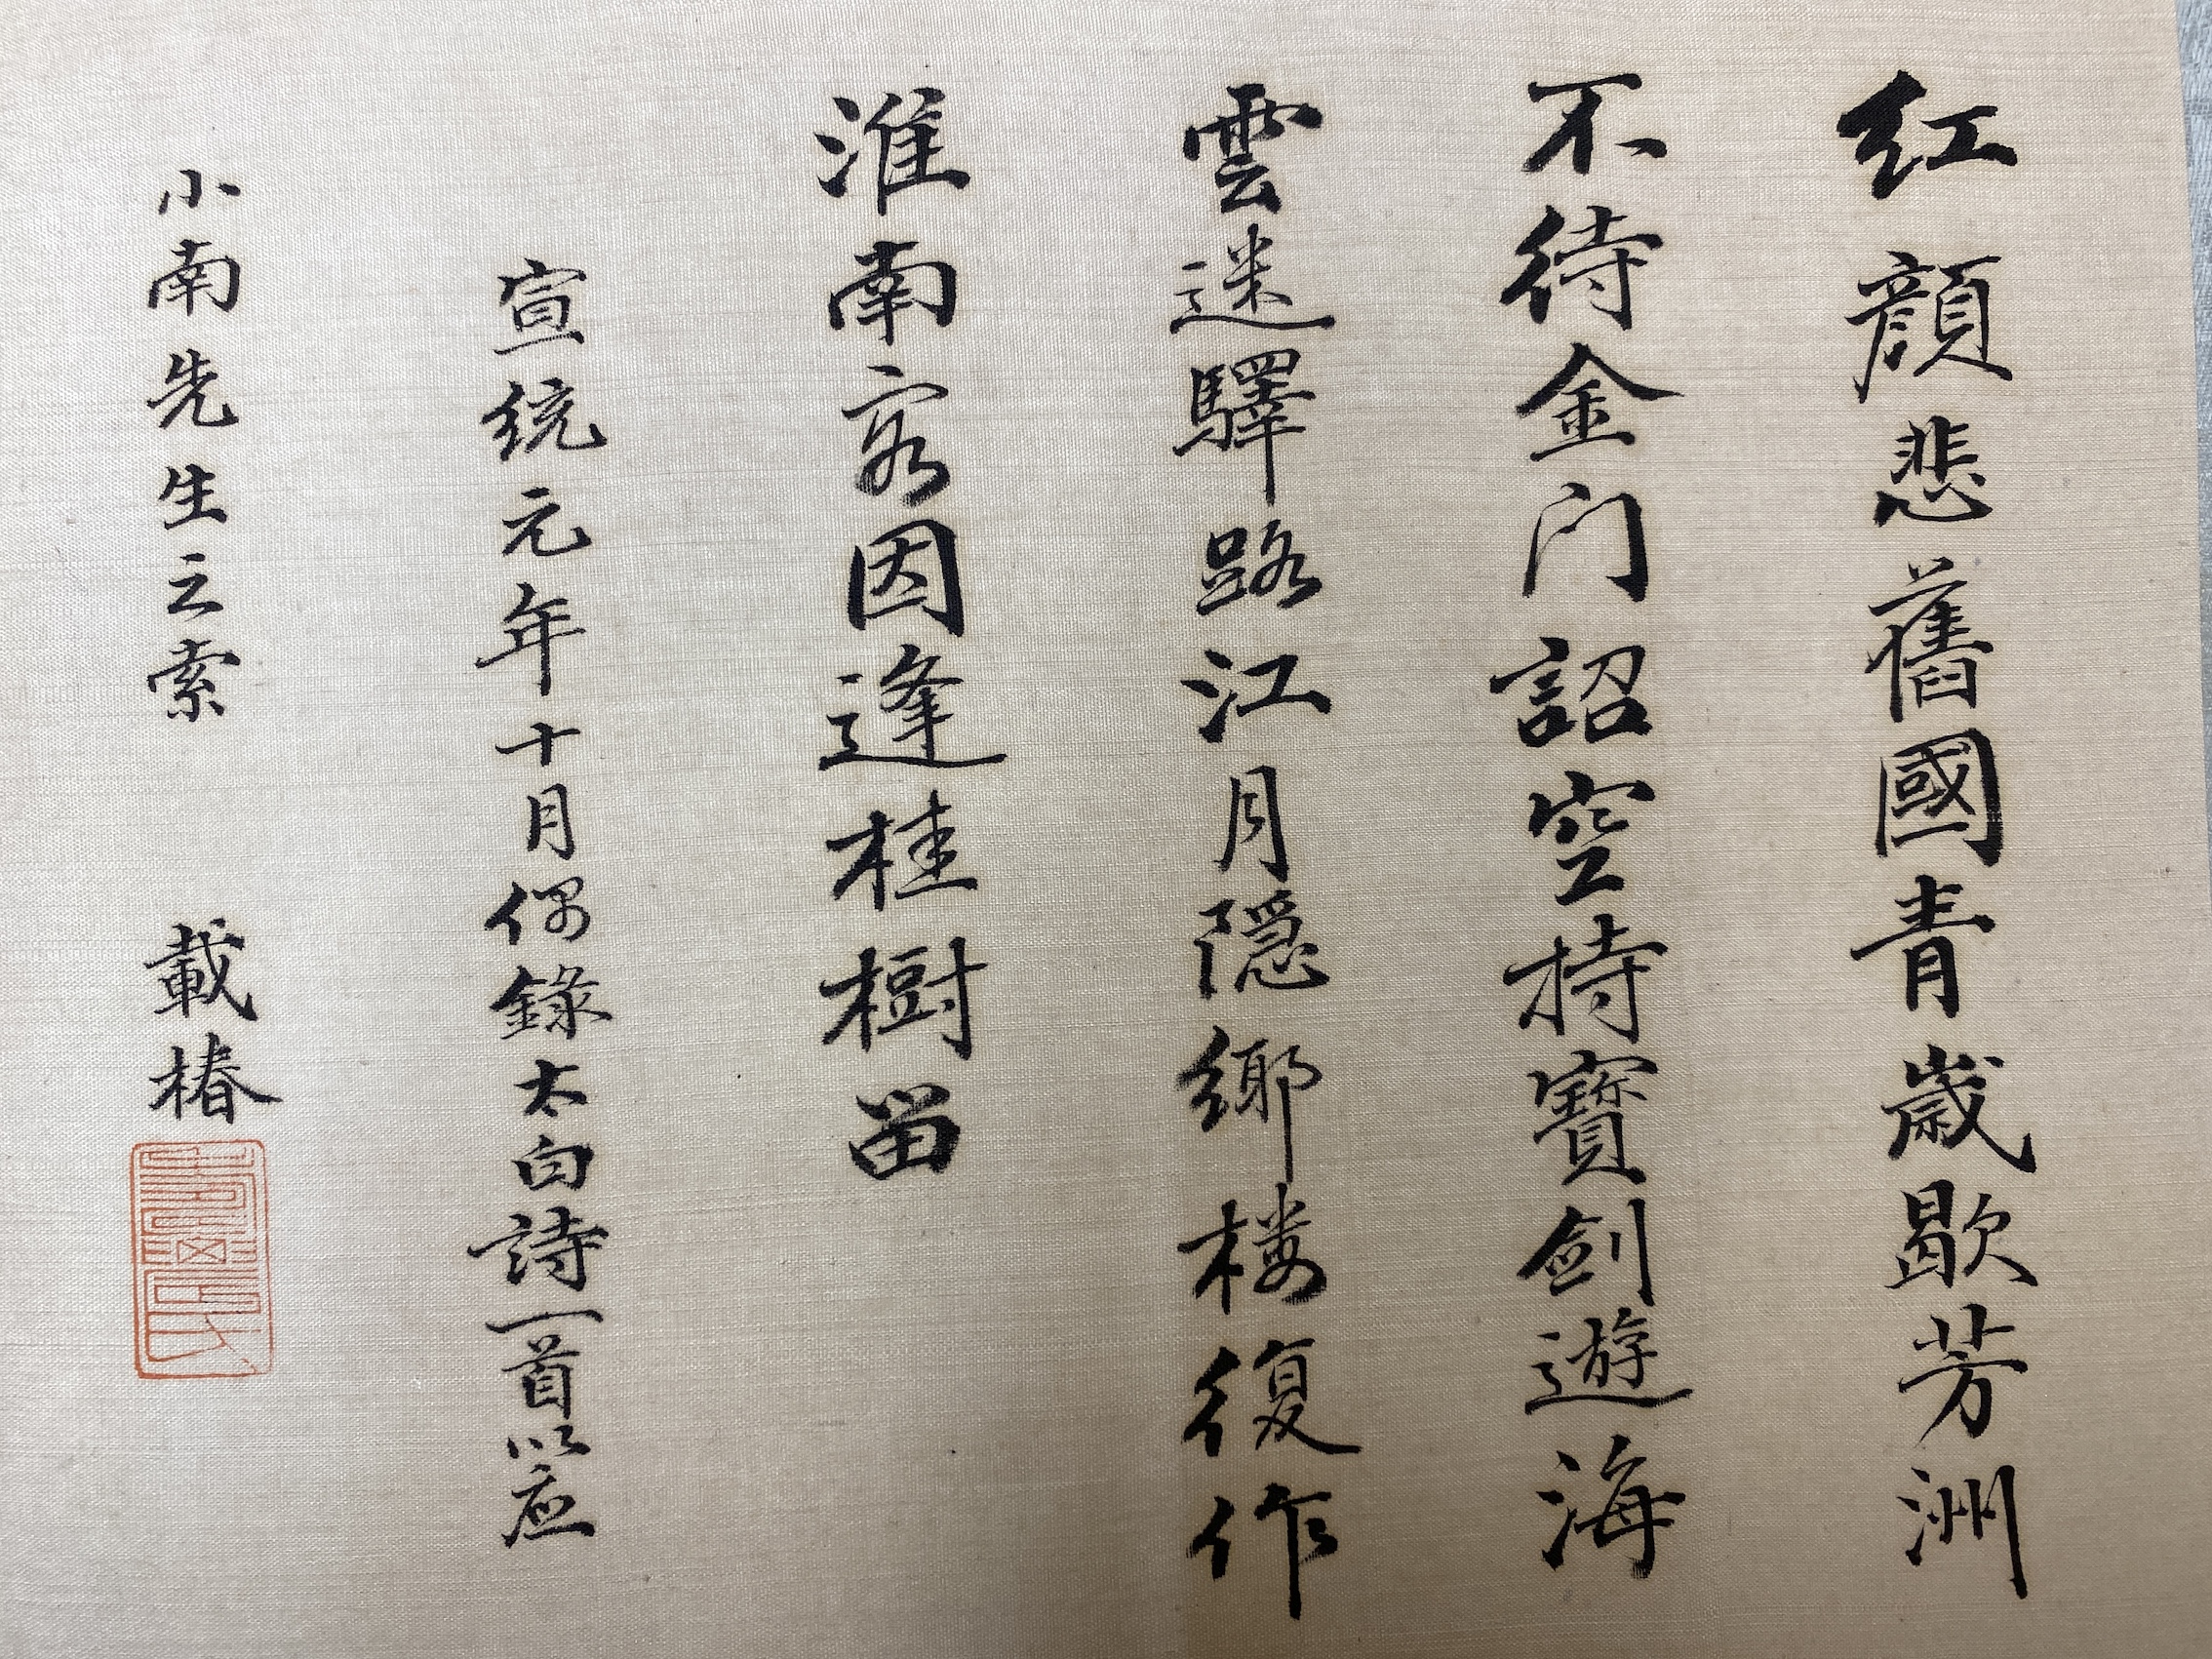 红顔悲舊國青歲歇芳洲
不待金门詔空持寶劍遊海
雲迷驛路江月隱鄉楼復作
淮南客因逢桂樹留
宣統元年十月偶錄太白詩一首以应
小南先生之索 載椿